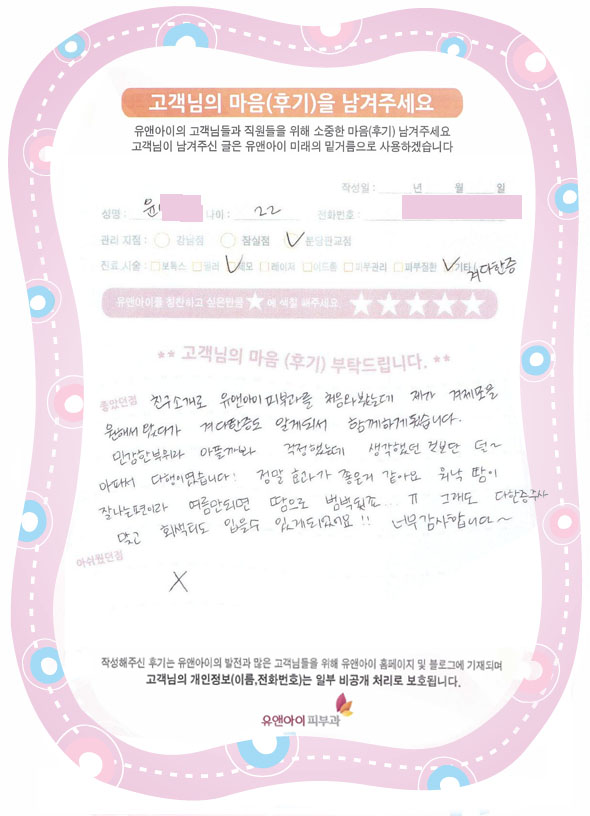 고객님의 마음(후기)을 남겨주세요
유앤아이의 고객님들과 직원들을 위해 소중한 마음(후기) 남겨주세요
고객님이 남겨주신 글은 유앤아이 미래의 밑거름으로 사용하겠습니다
작성일 : 년 월 일
성명 : 윤 나이 : 22 전화번호 :
관리 지점 : 강남점 잠실점 분당판교점
진료.시술 : 보톡스 필러 제모 레이저 여드름 피부관리 피부질환 기타( 겨다한증
유앤아이를 칭찬하고 싶은만큼 ★ 에 색칠 해주세요 ★★★★★
** 고객님의 마음 (후기) 부탁드립니다. **
좋았던점 친구소개로 유앤아이피부과를 처음와봤는데 제가 겨제모를
원해서 왔다가 겨다한증도 알게되서 함께하게됬습니다.
민감한부위라 아플까봐 걱정했는데 생각했던 것보단 덜~
아파서 다행이였습니다! 정말 효과가 좋은거 같아요 워낙 땀이
잘나는편이라 여름만되면 땀으로 범벅됬죠... ㅠ 그래도 다한증주사
맞고 회색티도 입을수 있게되었어요!! 너무감사합니다~
아쉬웠던점
X
작성해주신 후기는 유앤아이의 발전과 많은 고객님들을 위해 유앤아이 홈페이지 및 블로그에 기재되며
고객님의 개인정보(이름,전화번호)는 일부 비공개 처리로 보호됩니다.
유앤아이피부과